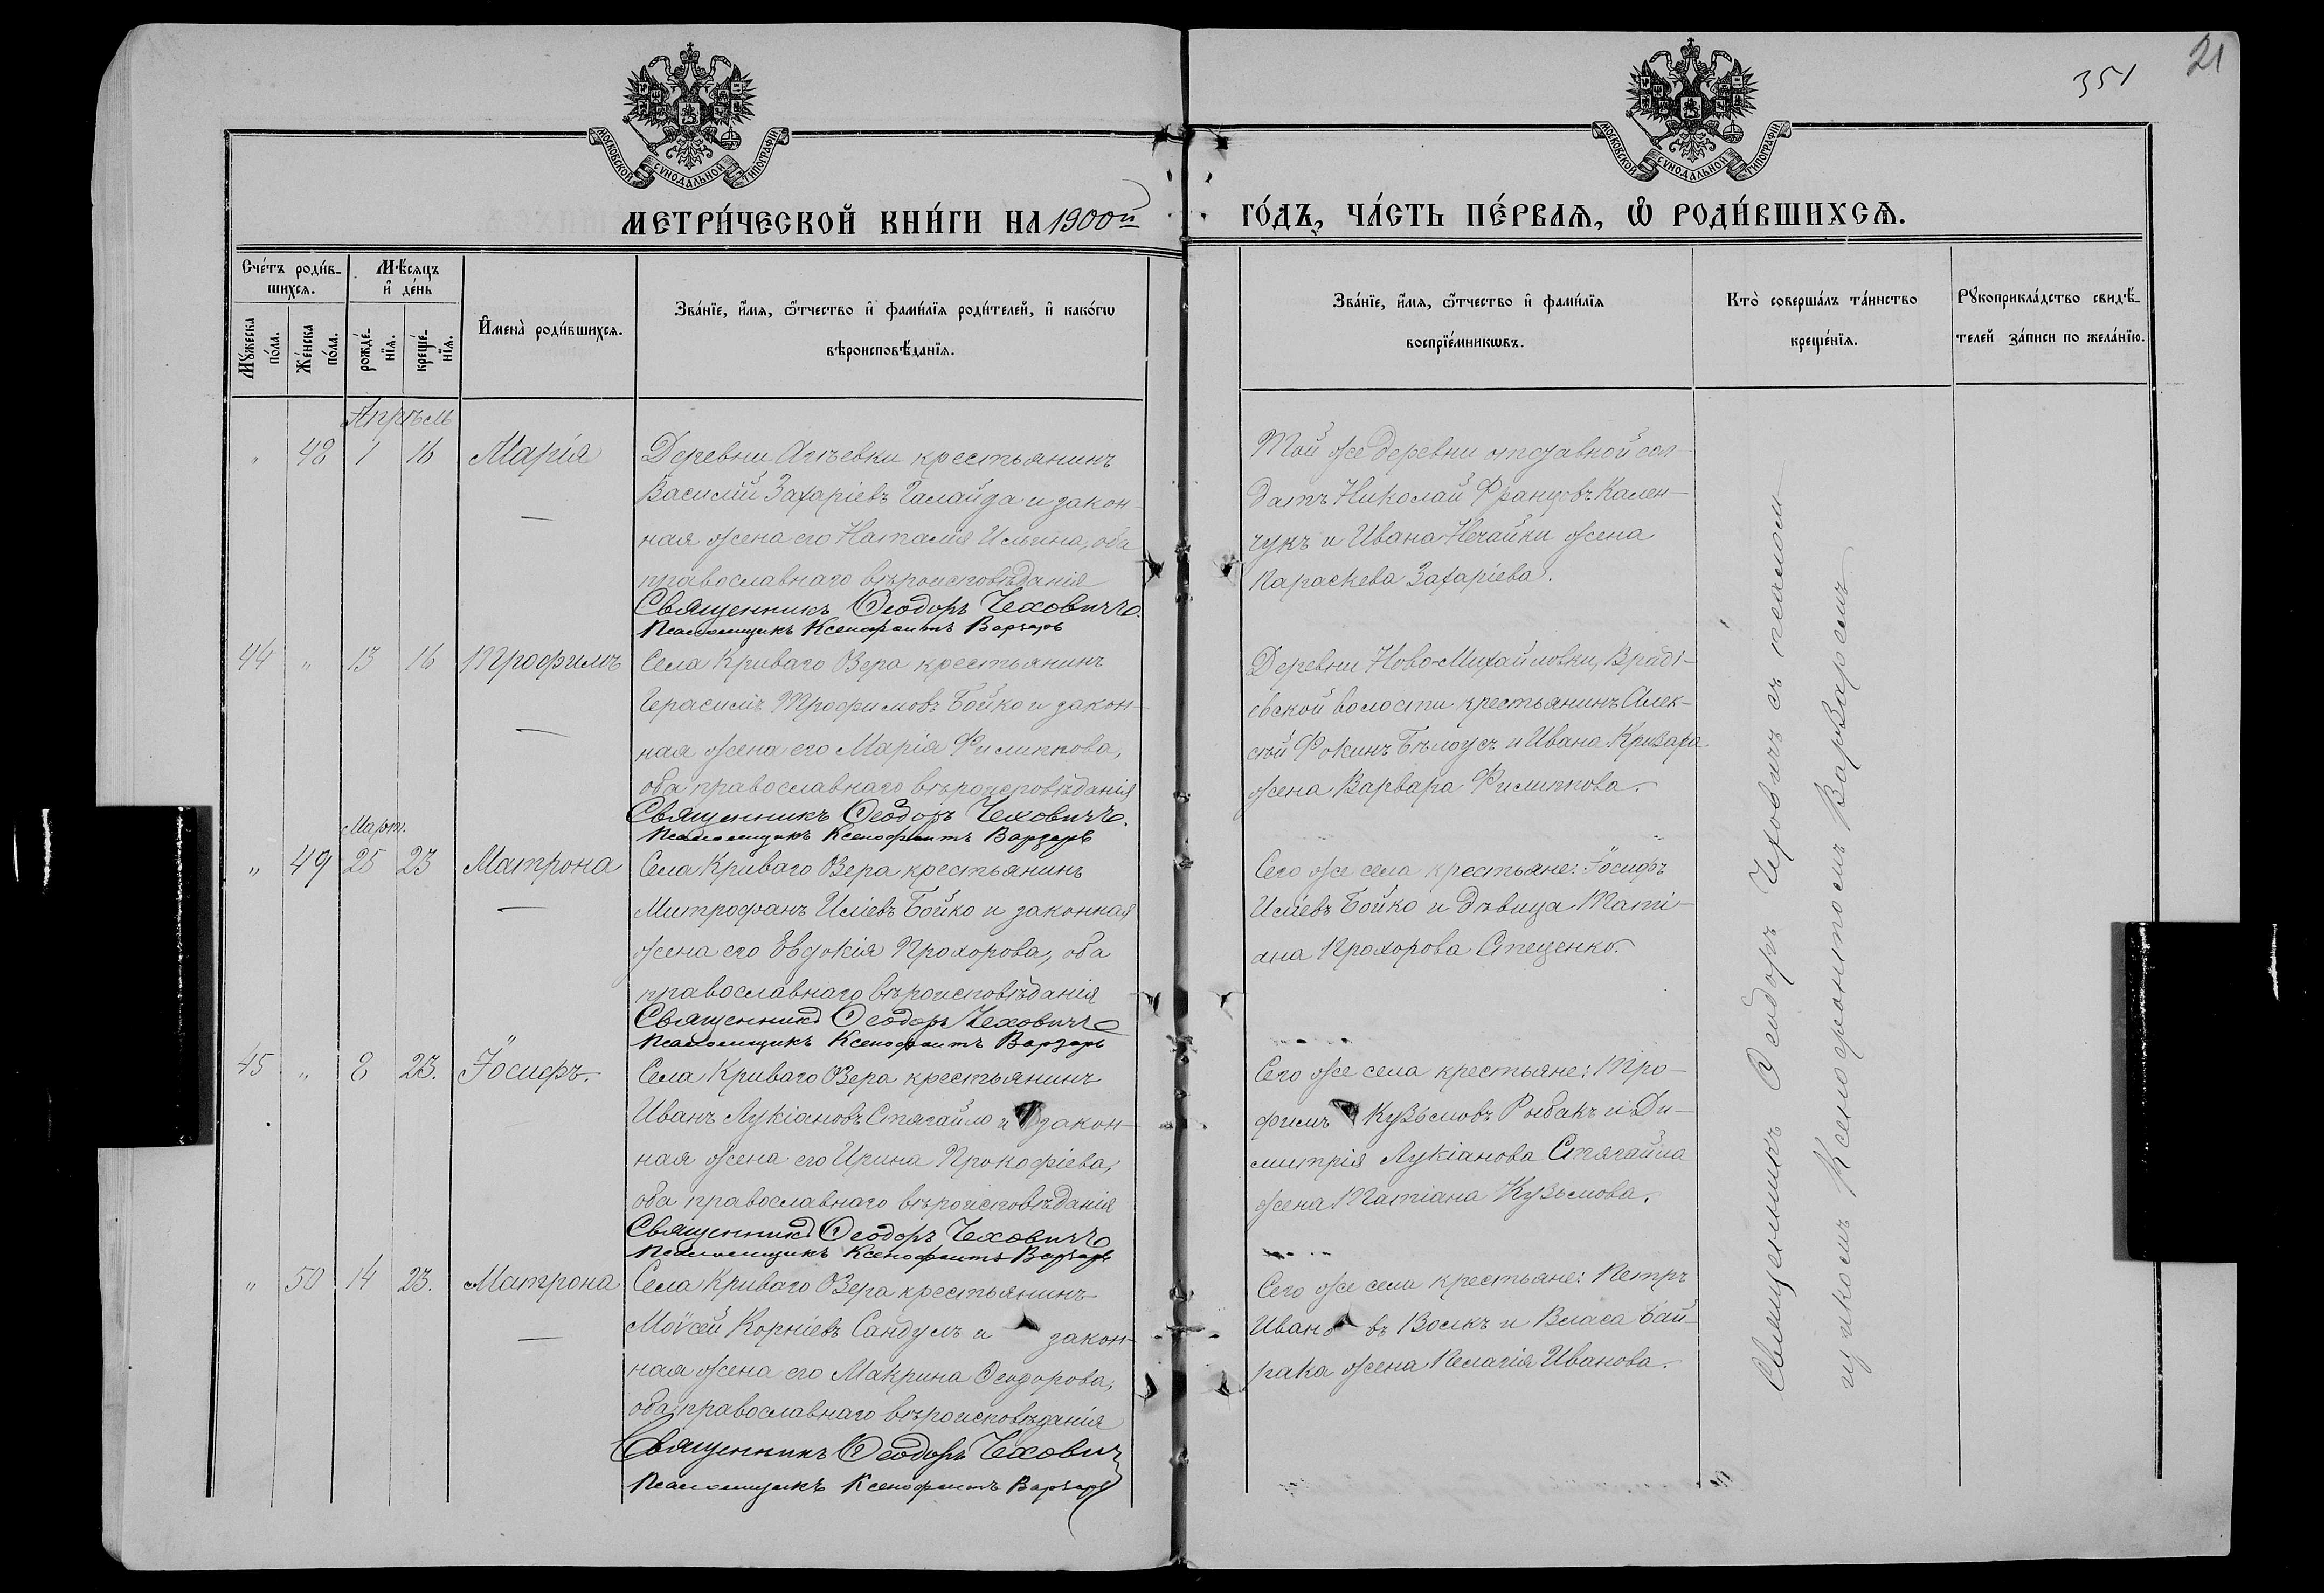 21
351
МОСКОВСКОЙ СѴНОДАЛЬНОЙ ТИПОГРАФІИ
МОСКОВСКОЙ СѴНОДАЛЬНОЙ ТИПОГРАФІИ
МЕТРИ́ЧЕСКОЙ КНИ́ГИ НА 1900й ГО́ДЪ, ЧА́СТЬ ПЕ́РВАѦ, Ѡ РОДИ́ВШИХСѦ.
Сче́тъ роди́в-
шихсѧ.
Мꙋ́жеска по́ла.
Же́нска по́ла.
Мѣ́сѧцъ и де́нь
рожде́-нїѧ.
креще́-нїѧ.
Имена̀ роди́вшихсѧ.
Зва́нїе, и́мѧ, ѻ́тчество и фами́лїѧ роди́телей, и како́гѡ
вѣроисповѣ́данїѧ.
Зва́нїе, и́мѧ, ѻ́тчество и фами́лїѧ
воспрїе́мникѡвъ.
Кто̀ соверша́лъ та́инство
креще́нїѧ.
Рꙋкоприкла́дство свидѣ́-
телей за́писи по жела́нїю.
Апрѣль
" 48 1 16 Марія
Деревни Агѣевки крестьянинъ
Василій Захаріевъ Галайда и закон-
ная жена его Наталія Ильина, оба
православнаго вѣроисповѣданія
Священникъ Ѳеодоръ Чеховичъ.
Псаломщикъ Ксенофонтъ Варзарь
Той же деревни отставной сол-
датъ Николай Францовъ Кален-
чукъ и Ивана Нечайки жена
Параскева Захаріева.
44 " 13 16 Трофимъ
Села Криваго Озера крестьянинъ
Герасимъ Трофимовъ Бойко и закон-
ная жена его Марія Филиппова,
оба православнаго вѣроисповѣданія
Священникъ Ѳеодоръ Чеховичъ.
Псаломщикъ Ксенофонтъ Варзарь
Деревни Ново-Михайловки, Враді-
евской волости крестьянинъ Алек-
сѣй Фокинъ Бѣлоусъ и Ивана
жена Варвара Филиппова.
Март.
" 49 25 23 Матрона
Села Криваго Озера крестьянинъ
Митрофанъ Иліевъ Бойко и законная
жена его Евдокія Прохорова, оба
православнаго вѣроисповѣданія
Священникъ Ѳеодоръ Чеховичъ
Псаломщикъ Ксенофонтъ Варзарь
Сего же села крестьяне: Іосифъ
Иліевъ Бойко и дѣвица Таті-
ана Прохорова Стеценко.
45 " 8 23. Іосифъ.
Села Криваго Озера крестьянинъ
Иванъ Лукіановъ Стягайло и закон-
ная жена его Ирина Прокофіева,
оба православнаго вѣроисповѣданія
Священникъ Ѳеодоръ Чеховичъ
Псаломщикъ Ксенофонтъ Варзарь
Сего же села крестьяне: Тро-
фимъ Кузьмовъ Рыбакъ и Ди-
митрія Лукіанова Стягайла
жена Татіана Кузьмова.
" 50 14 23. Матрона
Села Криваго Озера крестьянинъ
Моѵсей Корніевъ Сандулъ и закон-
ная жена его Макрина Ѳеодорова,
оба православнаго вѣроисповѣданія
Священникъ Ѳеодоръ Чехович
Псаломщикъ Ксенофонтъ Варзарь
Сего же села крестьяне: Петръ
Ивановъ Волкъ и Власа Бай-
рака жена Пелагія Иванова.
Священникъ Ѳеодоръ Чеховичъ съ псалом-
щикомъ Ксенофонтомъ Варзаремъ